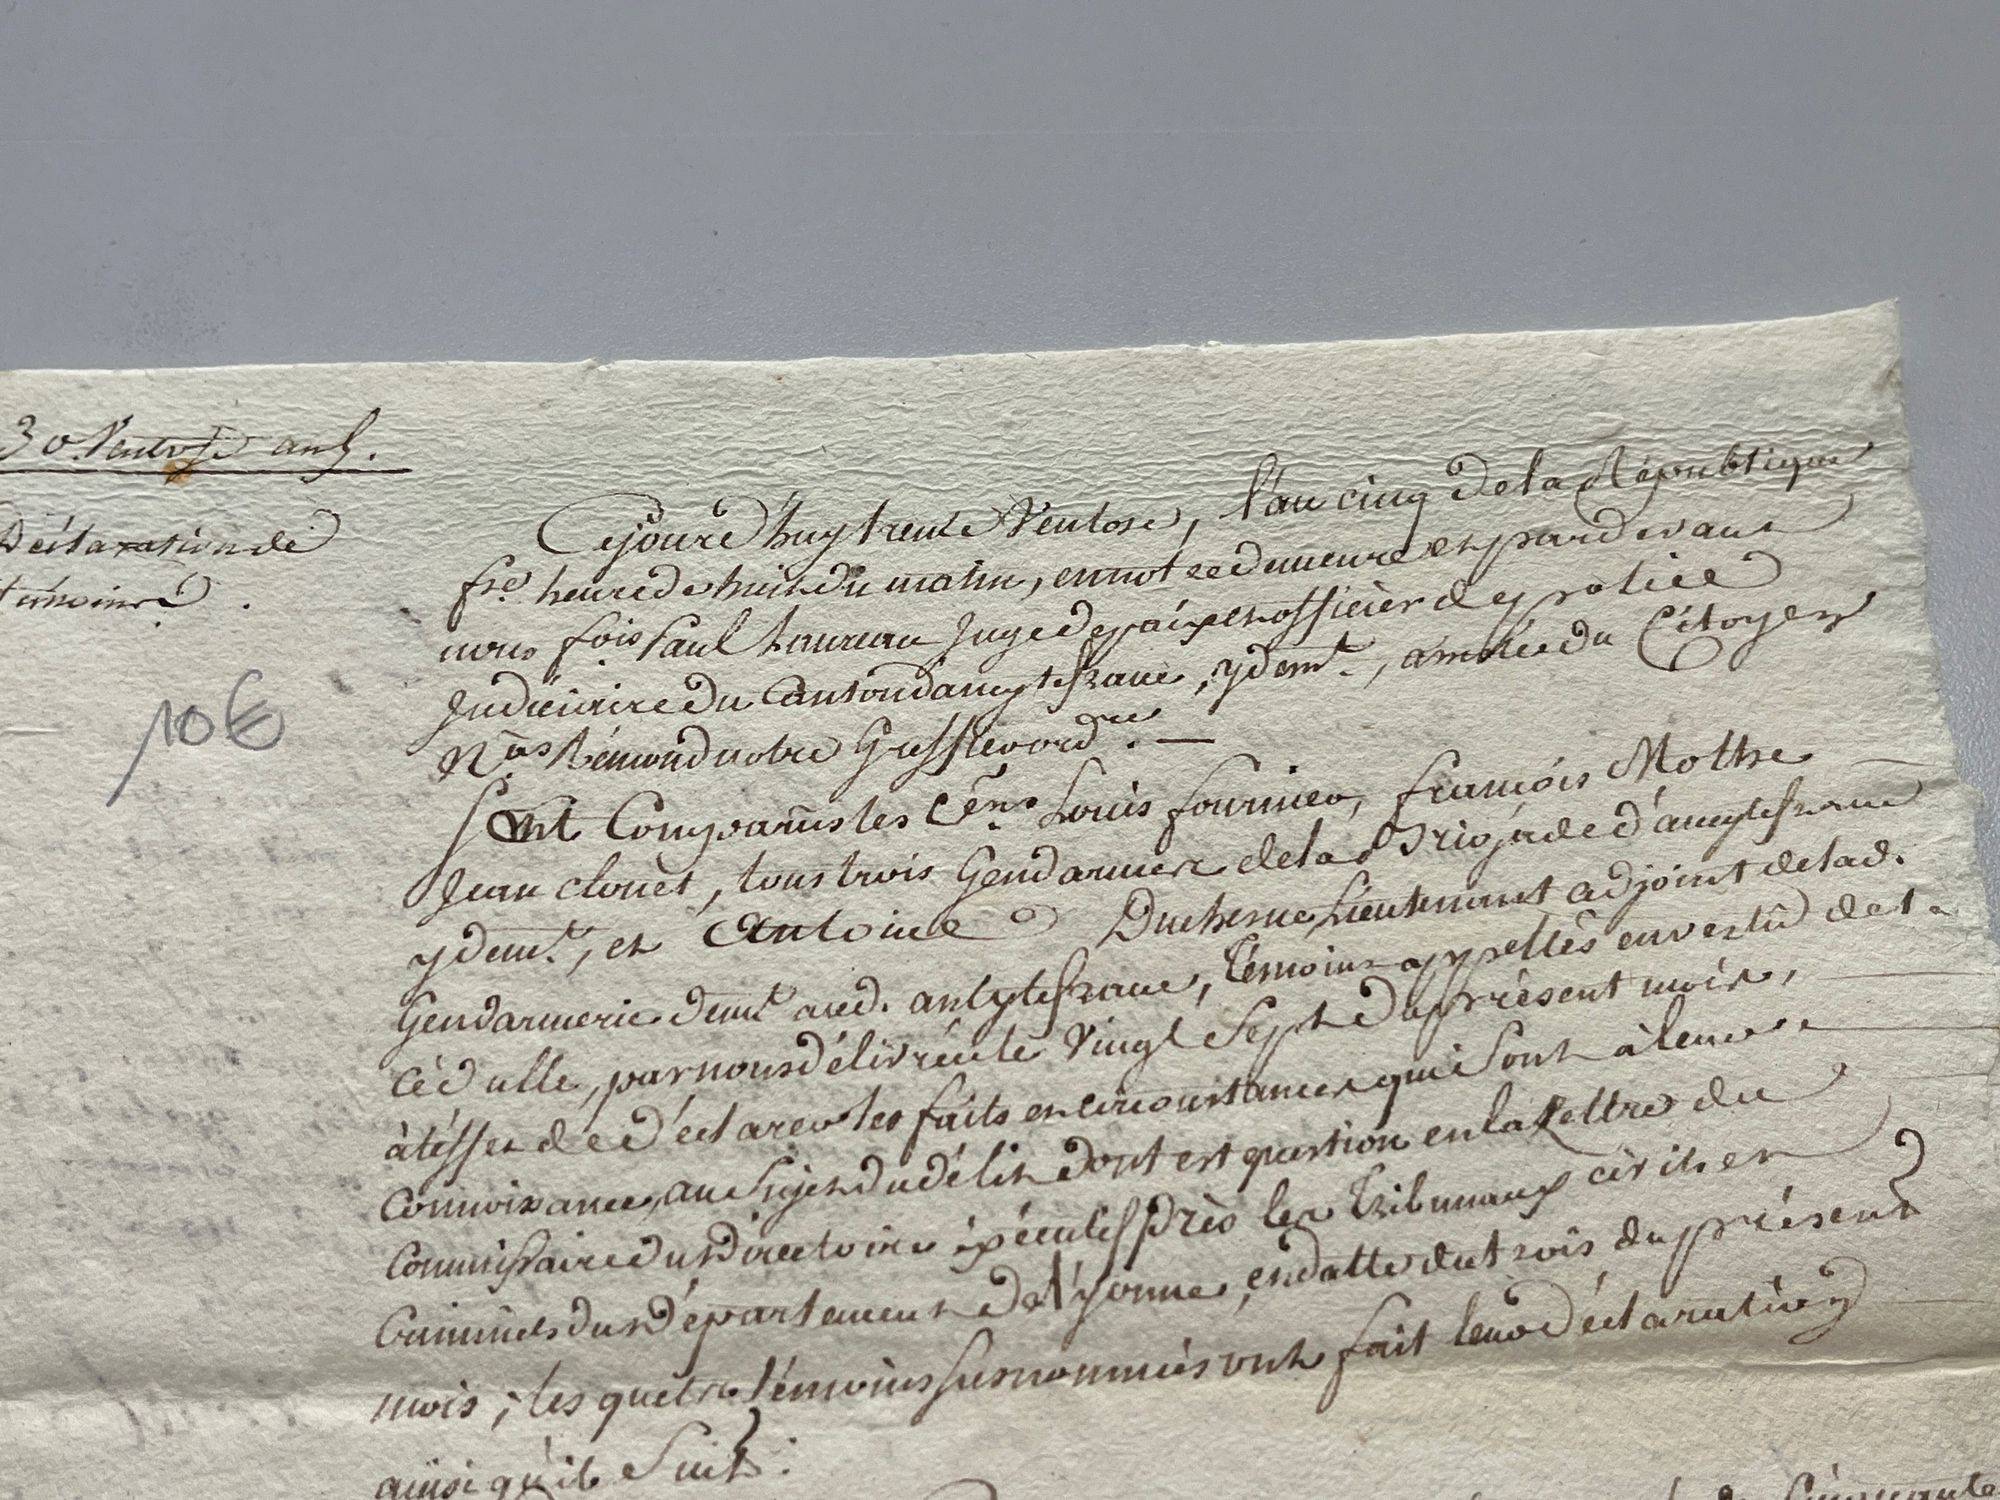 30 Ventose an 5.
Déclaration de
témoins.
10€
Cejourd'huy trente Ventose, l'an cinq de la République
fse. heure de huit du matin, en notre demeure et pardevant
nous fois Paul Laureau Juge de paix et officier de police
Judiciaire du Canton d'ancytefranc, y demt., assisté du Citoyen
Nas Rémond notre Greffier ordre. —
Sont Comparus les Cens. Louis fournier, françois Mothe
Jean clouet, tous trois Gendarmes de la Brigade d'ancytefranc
y demt., et Antoine Duchesne Lieutenant adjoint de lad.
Gendarmerie demt. aud. ancytefranc, Témoins appellés en vertu de la
cédulle, par nous délivrée le vingt Sept du présent mois,
à l'effet de déclarer les faits et circonstances qui sont à leur
connoixance, au Sujet du délit dont est question en la Lettre du
Commissaire du Directoire éxécutif près les Tribunaux civil et
Criminels du Département de l'yonne, en datte du trois du présent
mois; les quatre témoins susnommés ont fait leur déclaration
ainsi qu'il Suit:
Cinquante